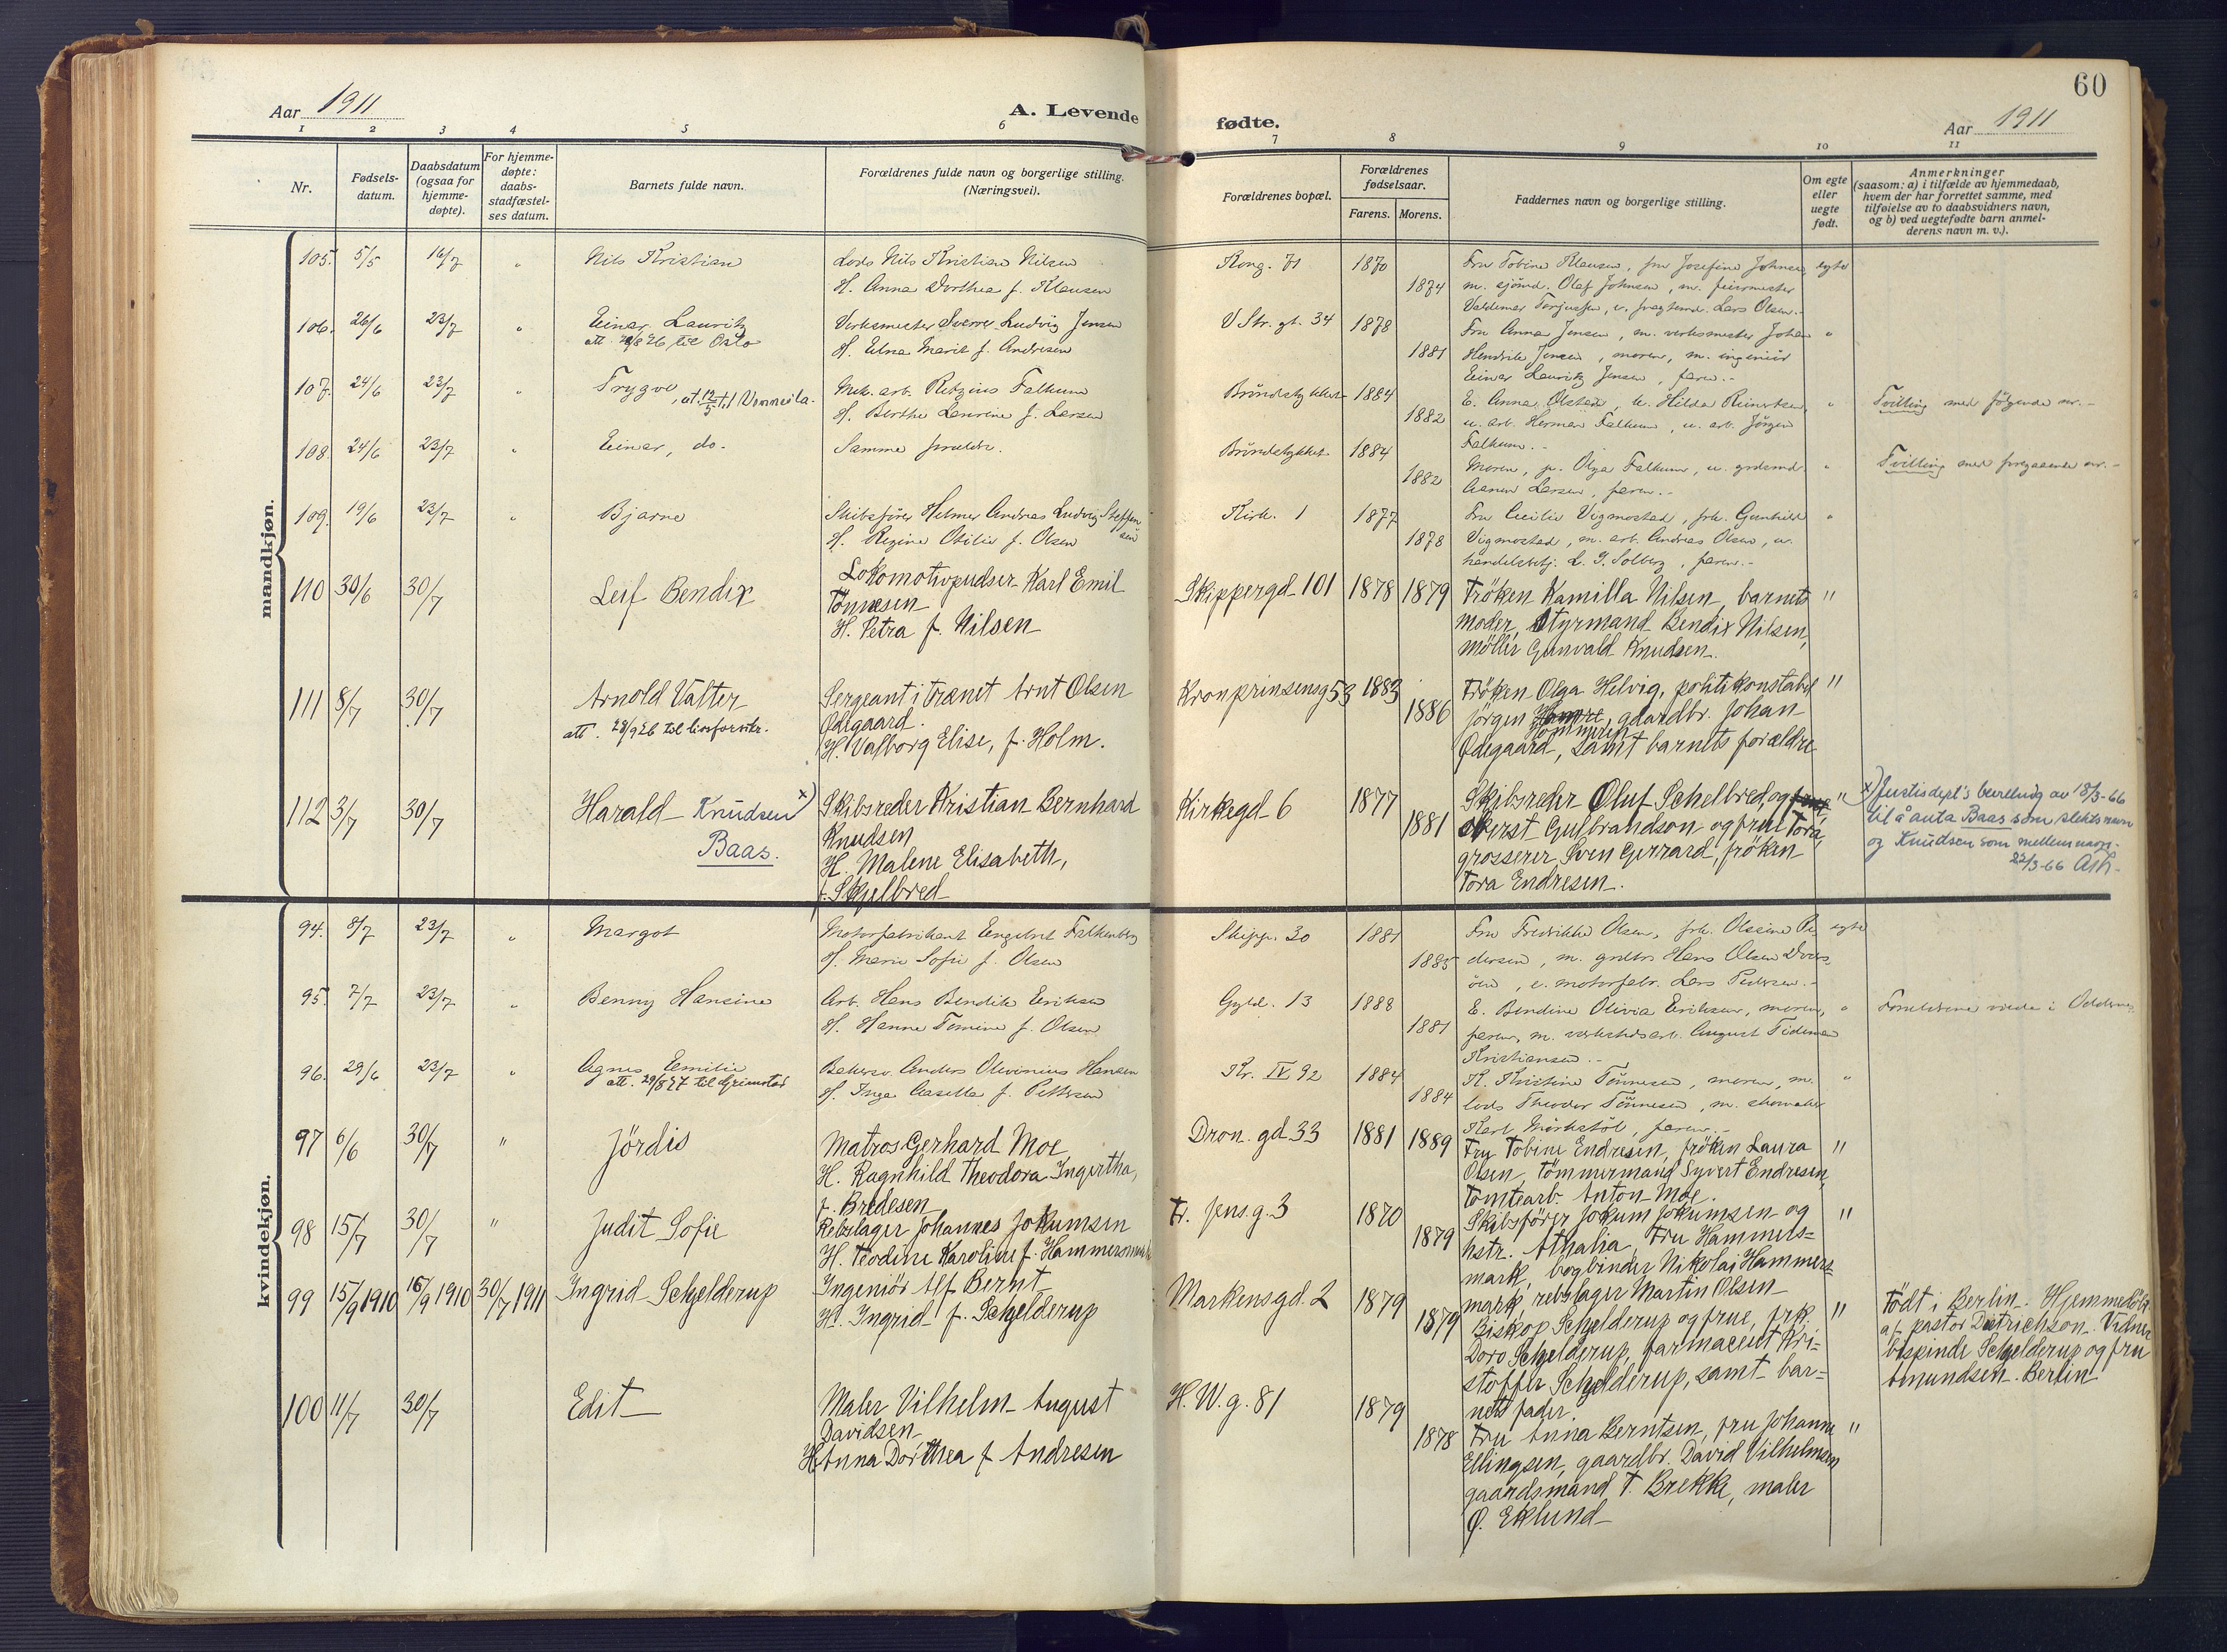 60
Aar 1911
A. Levende
fødte.
Aar 1911
1 2 3 4 5 6 7 8 9 10 11
Nr.
Fødsels-
datum.
Daabsdatum
(ogsaa for
hjemme-
døpte).
For hjemme-
døpte:
daabs-
stadfæstel-
ses datum.
Barnets fulde navn.
Forældrenes fulde navn og borgerlige stilling.
(Næringsvei).
Forældrenes bopæl.
Forældrenes
fødselsaar.
Farens. Morens.
Faddernes navn og borgerlige stilling.
Om egte
eller
uegte
født.
Anmerkninger
(saasom: a) i tilfælde av hjemmedaab,
hvem der har forrettet samme, med
tilføielse av to daabsvidners navn,
og b) ved uegtefødte barn anmel-
derens navn m. v.).
mandkjøn.
105. 5/5 16/7 " Nils Kristian
Lods Nils Kristian Nilsen
H. Anna Dorthea f. Klausen
Kong. 71 1870 1874
Fru Tobine Klausen, fru Josefine Johnsen egte
m. sjömd. Olaf Johnsen, m. feiermester
Valdemar Terjussen, u. fragtemd. Lars Olsen.-
106. 26/6 23/7 " Einar Lauritz
att. 28/8 26 til Oslo
Verksmester Sverre Ludvig Jensen
H. Edna Marit f. Andresen
V. Str. gt. 34 1878 1881
Fru Anna Jensen, m. verksmester Johan "
Hendrik Jensen, moren, m. ingeniör
Einar Lauritz Jensen, faren.-
107. 24/6 23/7 " Trygve, at. 12/5 til Vennesla.
Mek. arb. Retzius Falkum
H. Berthe Laurine f. Larsen
Bründstykket 1884 1882
E. Anna Olstad, u. Hilda Reinertsen "
u. arb. Herman Falkum, u. arb. Jörgen
Falkum.-
Tvilling med fölgende nr.-
108. 24/6 23/7 " Einar, do-
Samme forældre.
Bründstykket 1884 1882
Moren, p. Olga Falkum, u. grdsmd. "
Aanen Larsen, faren.-
Tvilling med foregaaende nr.-
109. 19/6 23/7 " Bjarne
Skibsförer Helmer Andreas Ludvig Steffen
sen
H. Regine Otilie f. Olsen
Kirk. 1 1877 1878
Fru Cecilie Vigmostad, frk. Gunhild "
Vigmostad, m. arb. Andreas Olsen, u.
handelsbetj. L. J. Solberg, faren.-
110 30/6 30/7 Leif Bendix
Lokomotivpudser Karl Emil
Tönnesen
H. Petra f. Nilsen
Skippergd 101 1878 1879
Fröken Kamilla Nilsen, barnets "
moder, Styrmand Bendix Nilsen,
möller Gunvald Knudsen.
111 8/7 30/7 Arnold Valter
att. 28/9 26 til livsforsikr.
Sergeant i Trænet Arnt Olsen
Ødegaard.
H. Valborg Elise, f. Holm.
Kronprinsensg 53 1883 1886
Fröken Olga Helvig, politikonstabel "
Jörgen Homme, gaardbr. Johan
Hommeren
Ødegaard, samt barnets forældre
112 3/7 30/7 Harald Knudsen x)
Baas.
Skibsreder Kristian Bernhard
Knudsen
H. Malene Elisabeth,
f. Skjelbred
Kirkegd 6 1877 1881
Skibsreder Oluf Schelbred, og frue "
oberst Gulbrandson og frue Tora,
grosserer Sven Gerrard, fröken
Tora Endresen.
x) Justisdept's bevilling av 18/3-66
til å anta Baas som slektsnavn
og Knudsen som mellemnavn.
22/3-66 Ath.
kvindekjøn.
94. 8/7 23/7 " Margot
Motorfabrikant Engebret Falkenberg
H. Marie Sofie f. Olsen
Skipp. 30 1881 1885
Fru Fredrikke Olsen, frk. Olsine Pe egte
dersen, m. grdbr. Hans Olsen Dvers-
öen, u. motorfabr. Lars Pedersen.-
95. 7/7 23/7 " Benny Hansine
Arb. Hans Bendik Eriksen
H. Hanne Tomine f. Olsen
Gyld. 13 1888 1881
E. Bendine Olivia Eriksen, moren, "
faren, m. verkstedsarb. August Tideman
Kristiansen.-
Forældrene viede i Oddernes
96. 29/6 23/7 " Agnes Emilie
att. 29/8 27 til Grimstad
Bakersv. Anders Olevinius Hansen
H. Inga Aasella f. Pettersen
Kr. IV 92 1884 1884
K. Kristine Tönnesen, moren, m. "
lods Theodor Tönnesen, m. skomaker
Karl Mörkestöl, faren.-
97 6/6 30/7 " Jördis
Matros Gerhard Moe
H. Ragnhild Theodora Ingertha,
f. Bredesen
Dron. gd 33 1881 1889
Fru Tobine Endresen, fröken Laura "
Olsen, tömmermand Syvert Endresen,
tomtearb. Anton Moe.
98 15/7 30/7 " Judit Sofie
Rebslager Johannes Jokumsen
H. Teodine Karoline f. Hammersmark
Tr. jens. g. 3 1870 1879
Skibsförer Jokum Jokumsen og "
hstr. Athalia, Fru Hammers=
mark, bogbinder Nikolai Hammers=
mark, rebslager Martin Olsen
99 15/9 1910 16/9 1910 30/7 1911 Ingrid Schjelderup
Ingeniör Alf Bernt
H. Ingrid f. Schjelderup
Markensgd. 2 1879 1879
Biskop Schjelderup og frue, frk. "
Doro Schjelderup, farmaceut Kri=
stoffer Schjelderup, samt bar=
nets fader.
Födt i Berlin. Hjemmedöbt
af pastor Dietrichson. Vidner
bispinde Schjelderup og fru
Amundsen. Berlin
100 11/7 30/7 Edit
Maler Vilhelm August
Davidsen
H. Anna Dorthea f. Andresen
H. W. g. 81 1879 1878
Fru Anna Berntsen, fru Johanne "
Ellingsen, gaardbr. David Vilhelmsen
gaardsmand T. Brekke, maler
O. Eklund